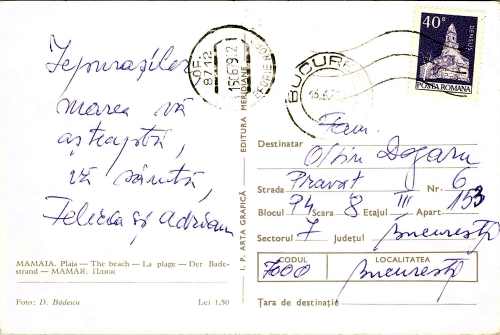 Iepurașilor
marea vă
așteaptă,
vă sărută,
Felicia și Adrian
MAMAIA. Plaja — The beach — La plage — Der Bade-
strand — МАМАЯ. Пляж
Foto: D. Bădescu Lei 1,50
I. P. ARTA GRAFICĂ EDITURA MERIDIANE
OF.
87-12
15.6.79.12
BUCUR
15.6.7
40 B
DENSUȘ
POSTA ROMANA
Fam.
Destinatar Dogaru
Strada Pravăț Nr. 6
Blocul P4 Scara 8 Etajul III Apart. 153
Sectorul 7 Județul București
CODUL LOCALITATEA
7000 București
Țara de destinație